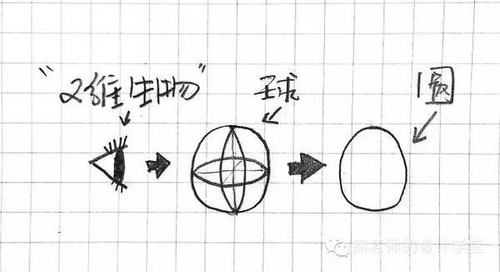 "2维生物"
球
圆